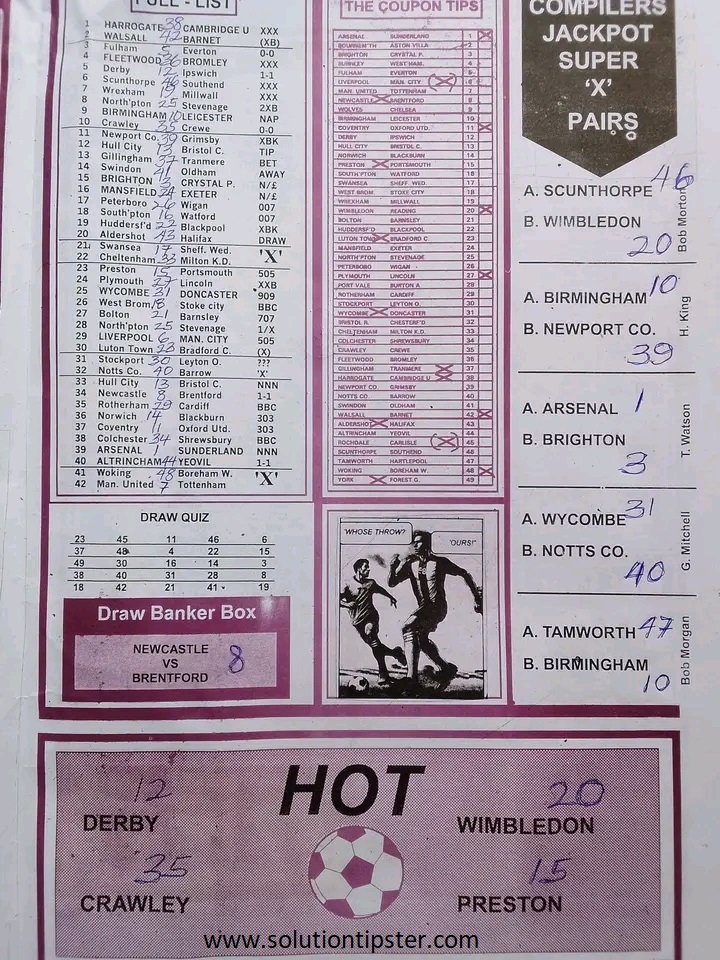 FULL - LIST
1 HARROGATE 38 CAMBRIDGE U XXX
2 WALSALL 42 BARNET (XB)
3 Fulham 5 Everton 0-0
4 FLEETWOOD 36 BROMLEY XXX
5 Derby 12 Ipswich 1-1
6 Scunthorpe 46 Southend XXX
7 Wrexham 19 Millwall XXX
8 North'pton 25 Stevenage 2XB
9 BIRMINGHAM 10 LEICESTER NAP
10 Crawley 35 Crewe 0-0
11 Newport Co. 39 Grimsby XBK
12 Hull City 13 Bristol C. TIP
13 Gillingham 37 Tranmere BET
14 Swindon 41 Oldham AWAY
15 BRIGHTON 3 CRYSTAL P. N/£
16 MANSFIELD 24 EXETER N/£
17 Peterboro 26 Wigan 007
18 South'pton 16 Watford 007
19 Huddersf'd 22 Blackpool XBK
20 Aldershot 43 Halifax DRAW
21 Swansea 17 Sheff. Wed. 'X'
22 Cheltenham 33 Milton K.D.
23 Preston 15 Portsmouth 505
24 Plymouth 27 Lincoln XXB
25 WYCOMBE 31 DONCASTER 909
26 West Brom 18 Stoke city BBC
27 Bolton 21 Barnsley 707
28 North'pton 25 Stevenage 1/X
29 LIVERPOOL 6 MAN. CITY 505
30 Luton Town 23 Bradford C. (X)
31 Stockport 30 Leyton O. ???
32 Notts Co. 40 Barrow 'X'
33 Hull City 13 Bristol C. NNN
34 Newcastle 8 Brentford 1-1
35 Rotherham 29 Cardiff BBC
36 Norwich 14 Blackburn 303
37 Coventry 11 Oxford Utd. 303
38 Colchester 34 Shrewsbury BBC
39 ARSENAL 1 SUNDERLAND NNN
40 ALTRINCHAM 44 YEOVIL 1-1
41 Woking 48 Boreham W. 'X'
42 Man. United 7 Tottenham
DRAW QUIZ
23 45 11 46 6
37 48 4 22 15
49 30 16 14 3
38 40 31 28 8
18 42 21 41 2
Draw Banker Box
NEWCASTLE
VS
BRENTFORD 8
THE COUPON TIPS
ARSENAL SUNDERLAND 1
BOURNEM'TH ASTON VILLA 2
BRIGHTON CRYSTAL P. 3
BURNLEY WEST HAM. 4
FULHAM EVERTON 5
LIVERPOOL MAN. CITY 6
MAN. UNITED TOTTENHAM 7
NEWCASTLE BRENTFORD 8
WOLVES CHELSEA 9
BIRMINGHAM LEICESTER 10
COVENTRY OXFORD UTD. 11
DERBY IPSWICH 12
HULL CITY BRISTOL C. 13
NORWICH BLACKBURN 14
PRESTON PORTSMOUTH 15
SOUTH'PTON WATFORD 16
SWANSEA SHEFF. WED. 17
WEST BROM STOKE CITY 18
WREXHAM MILLWALL 19
WIMBLEDON READING 20
BOLTON BARNSLEY 21
HUDDERSF'D BLACKPOOL 22
LUTON TOWN BRADFORD C. 23
MANSFIELD EXETER 24
NORTH'PTON STEVENAGE 25
PETERBORO WIGAN 26
PLYMOUTH LINCOLN 27
PORT VALE BURTON A. 28
ROTHERHAM CARDIFF 29
STOCKPORT LEYTON O. 30
WYCOMBE DONCASTER 31
BRISTOL R. CHESTERF'D 32
CHELTENHAM MILTON K.D. 33
COLCHESTER SHREWSBURY 34
CRAWLEY CREWE 35
FLEETWOOD BROMLEY 36
GILLINGHAM TRANMERE 37
HARROGATE CAMBRIDGE U 38
NEWPORT CO. GRIMSBY 39
NOTTS CO. BARROW 40
SWINDON OLDHAM 41
WALSALL BARNET 42
ALDERSHOT HALIFAX 43
ALTRINCHAM YEOVIL 44
ROCHDALE CARLISLE 45
SCUNTHORPE SOUTHEND 46
TAMWORTH HARTLEPOOL 47
WOKING BOREHAM W. 48
YORK FOREST G. 49
WHOSE THROW?
'OURS!'
COMPILERS
JACKPOT
SUPER
'X'
PAIRS
A. SCUNTHORPE 46
B. WIMBLEDON
20
Bob Morton
A. BIRMINGHAM 10
B. NEWPORT CO.
39
H. King
A. ARSENAL 1
B. BRIGHTON
3
T. Watson
A. WYCOMBE 31
B. NOTTS CO.
40
G. Mitchell
A. TAMWORTH 47
B. BIRMINGHAM
10
Bob Morgan
HOT
12
DERBY
20
WIMBLEDON
35
CRAWLEY
15
PRESTON
www.solutiontipster.com